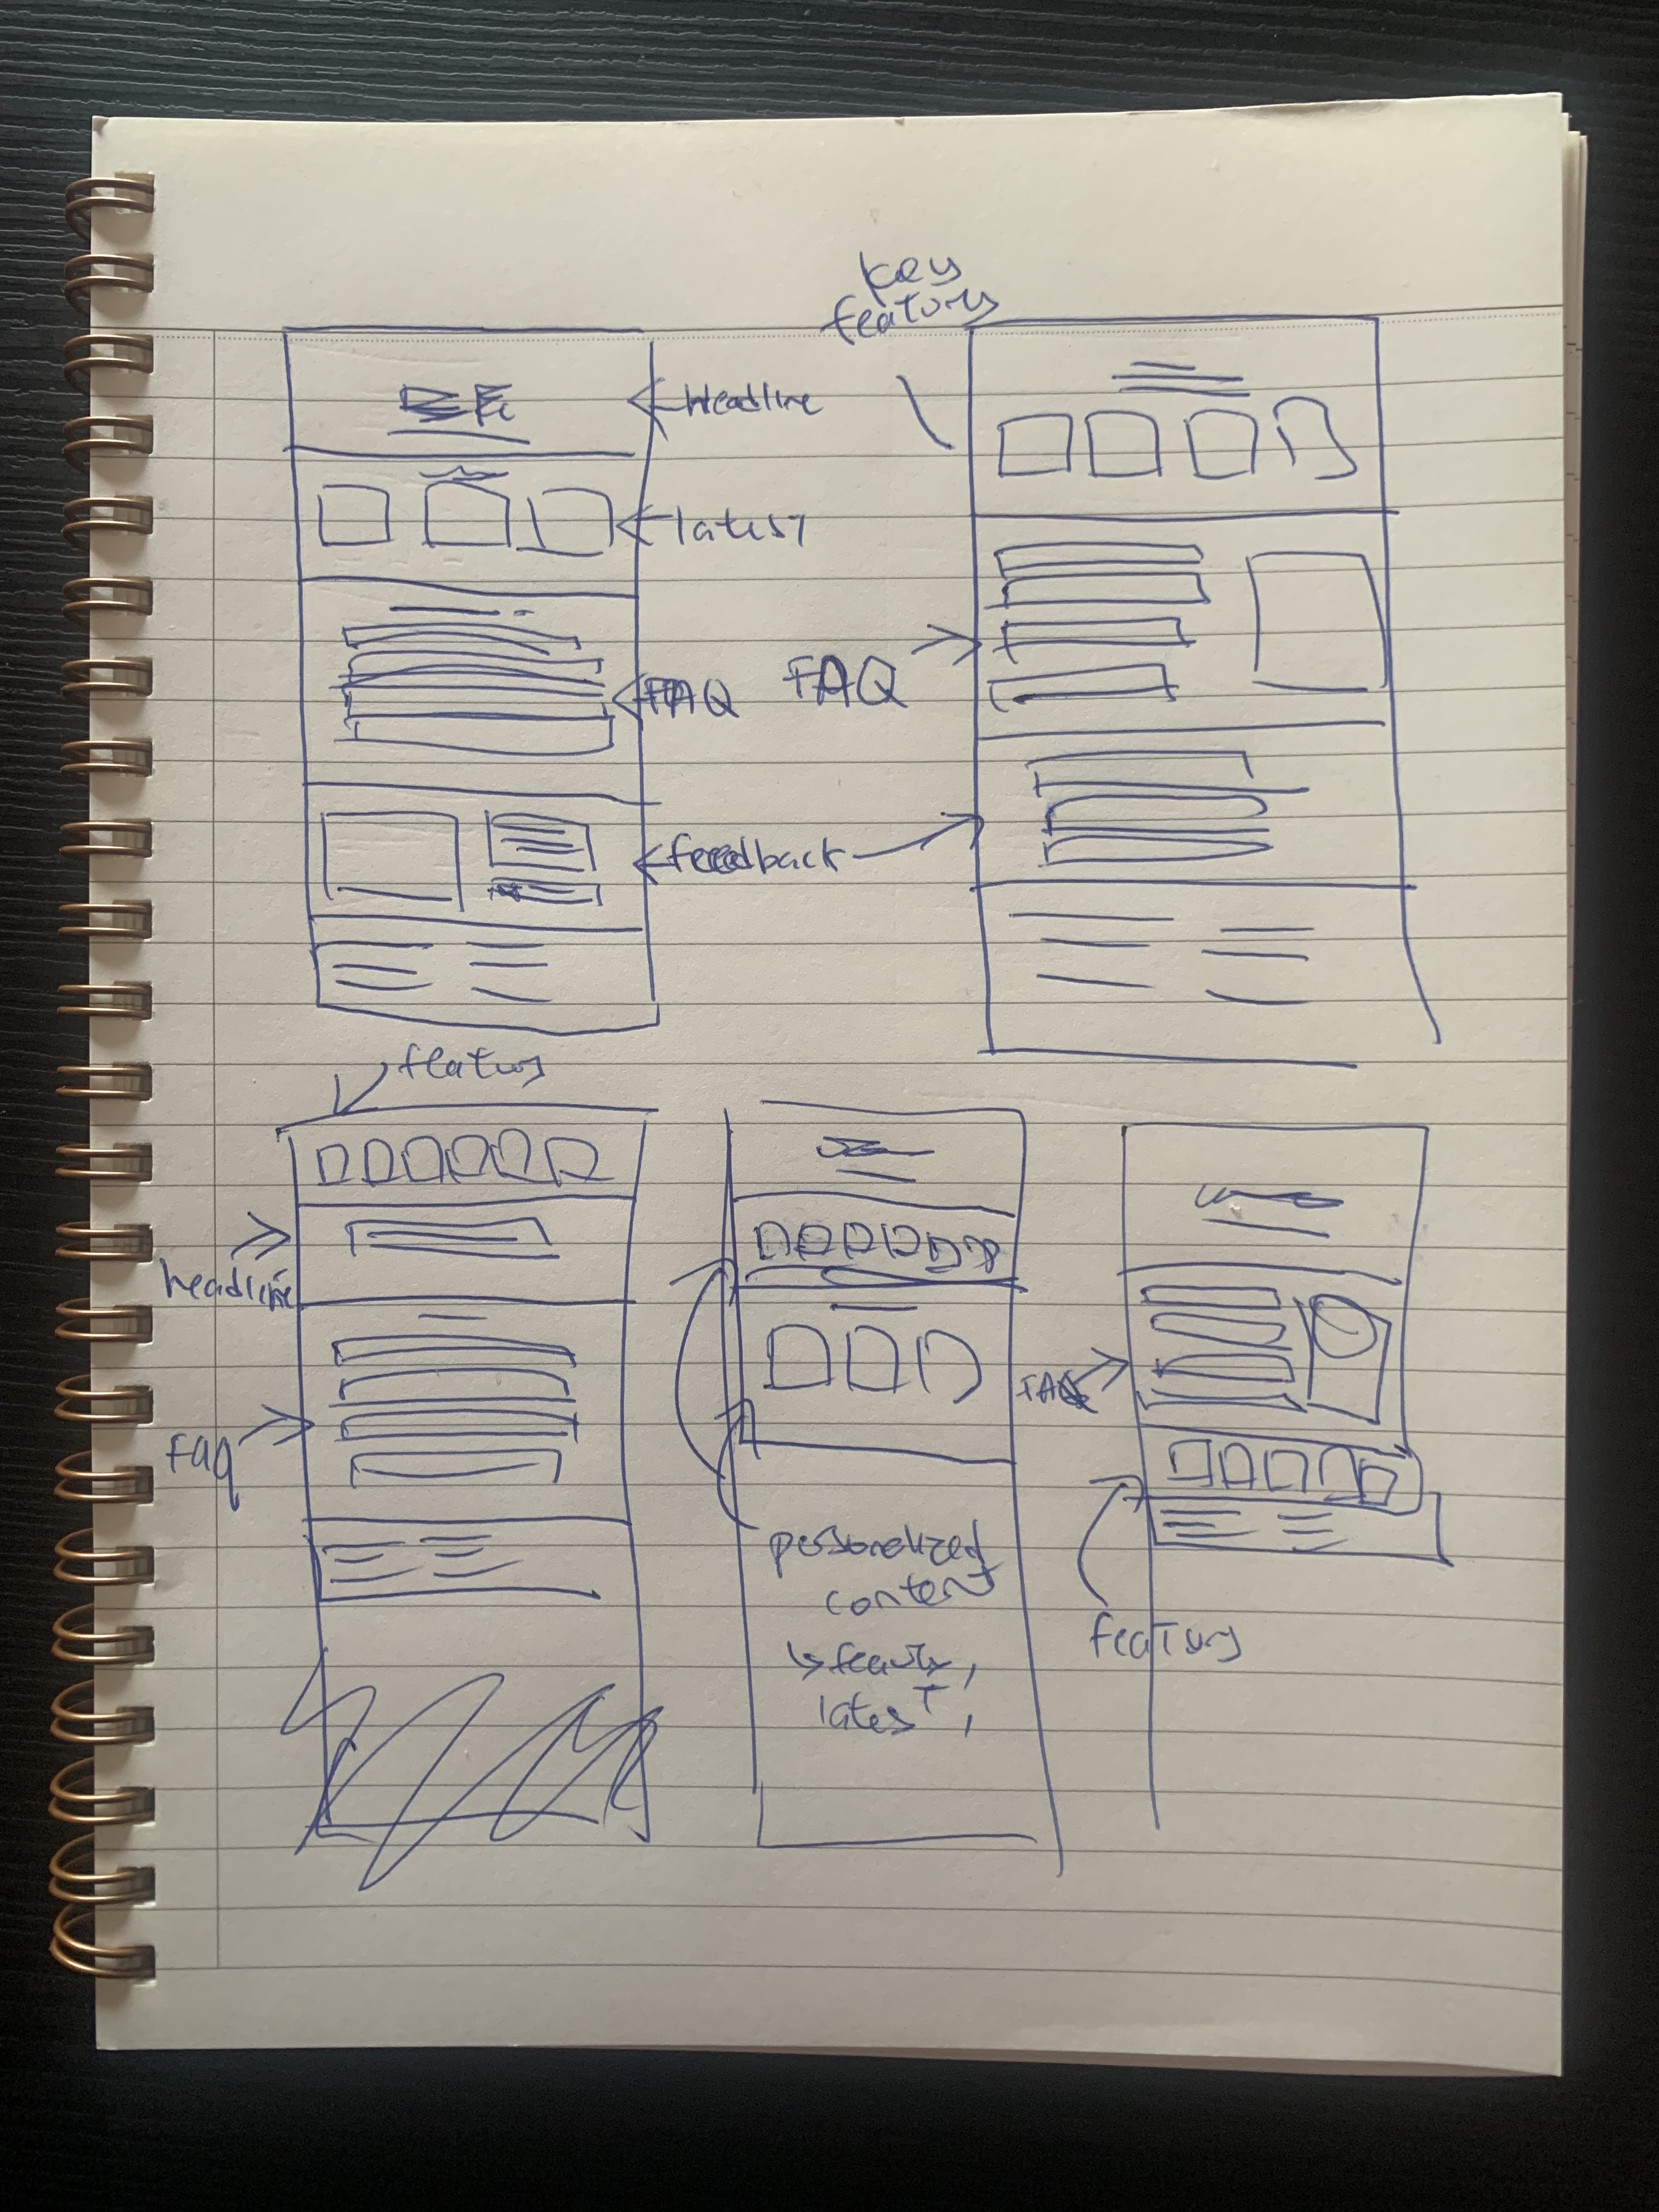 key
features
headline
latest
FAQ
FAQ
feedback
features
headline
FAQ
Faq
personalized
content
↳ feature,
latest,
features